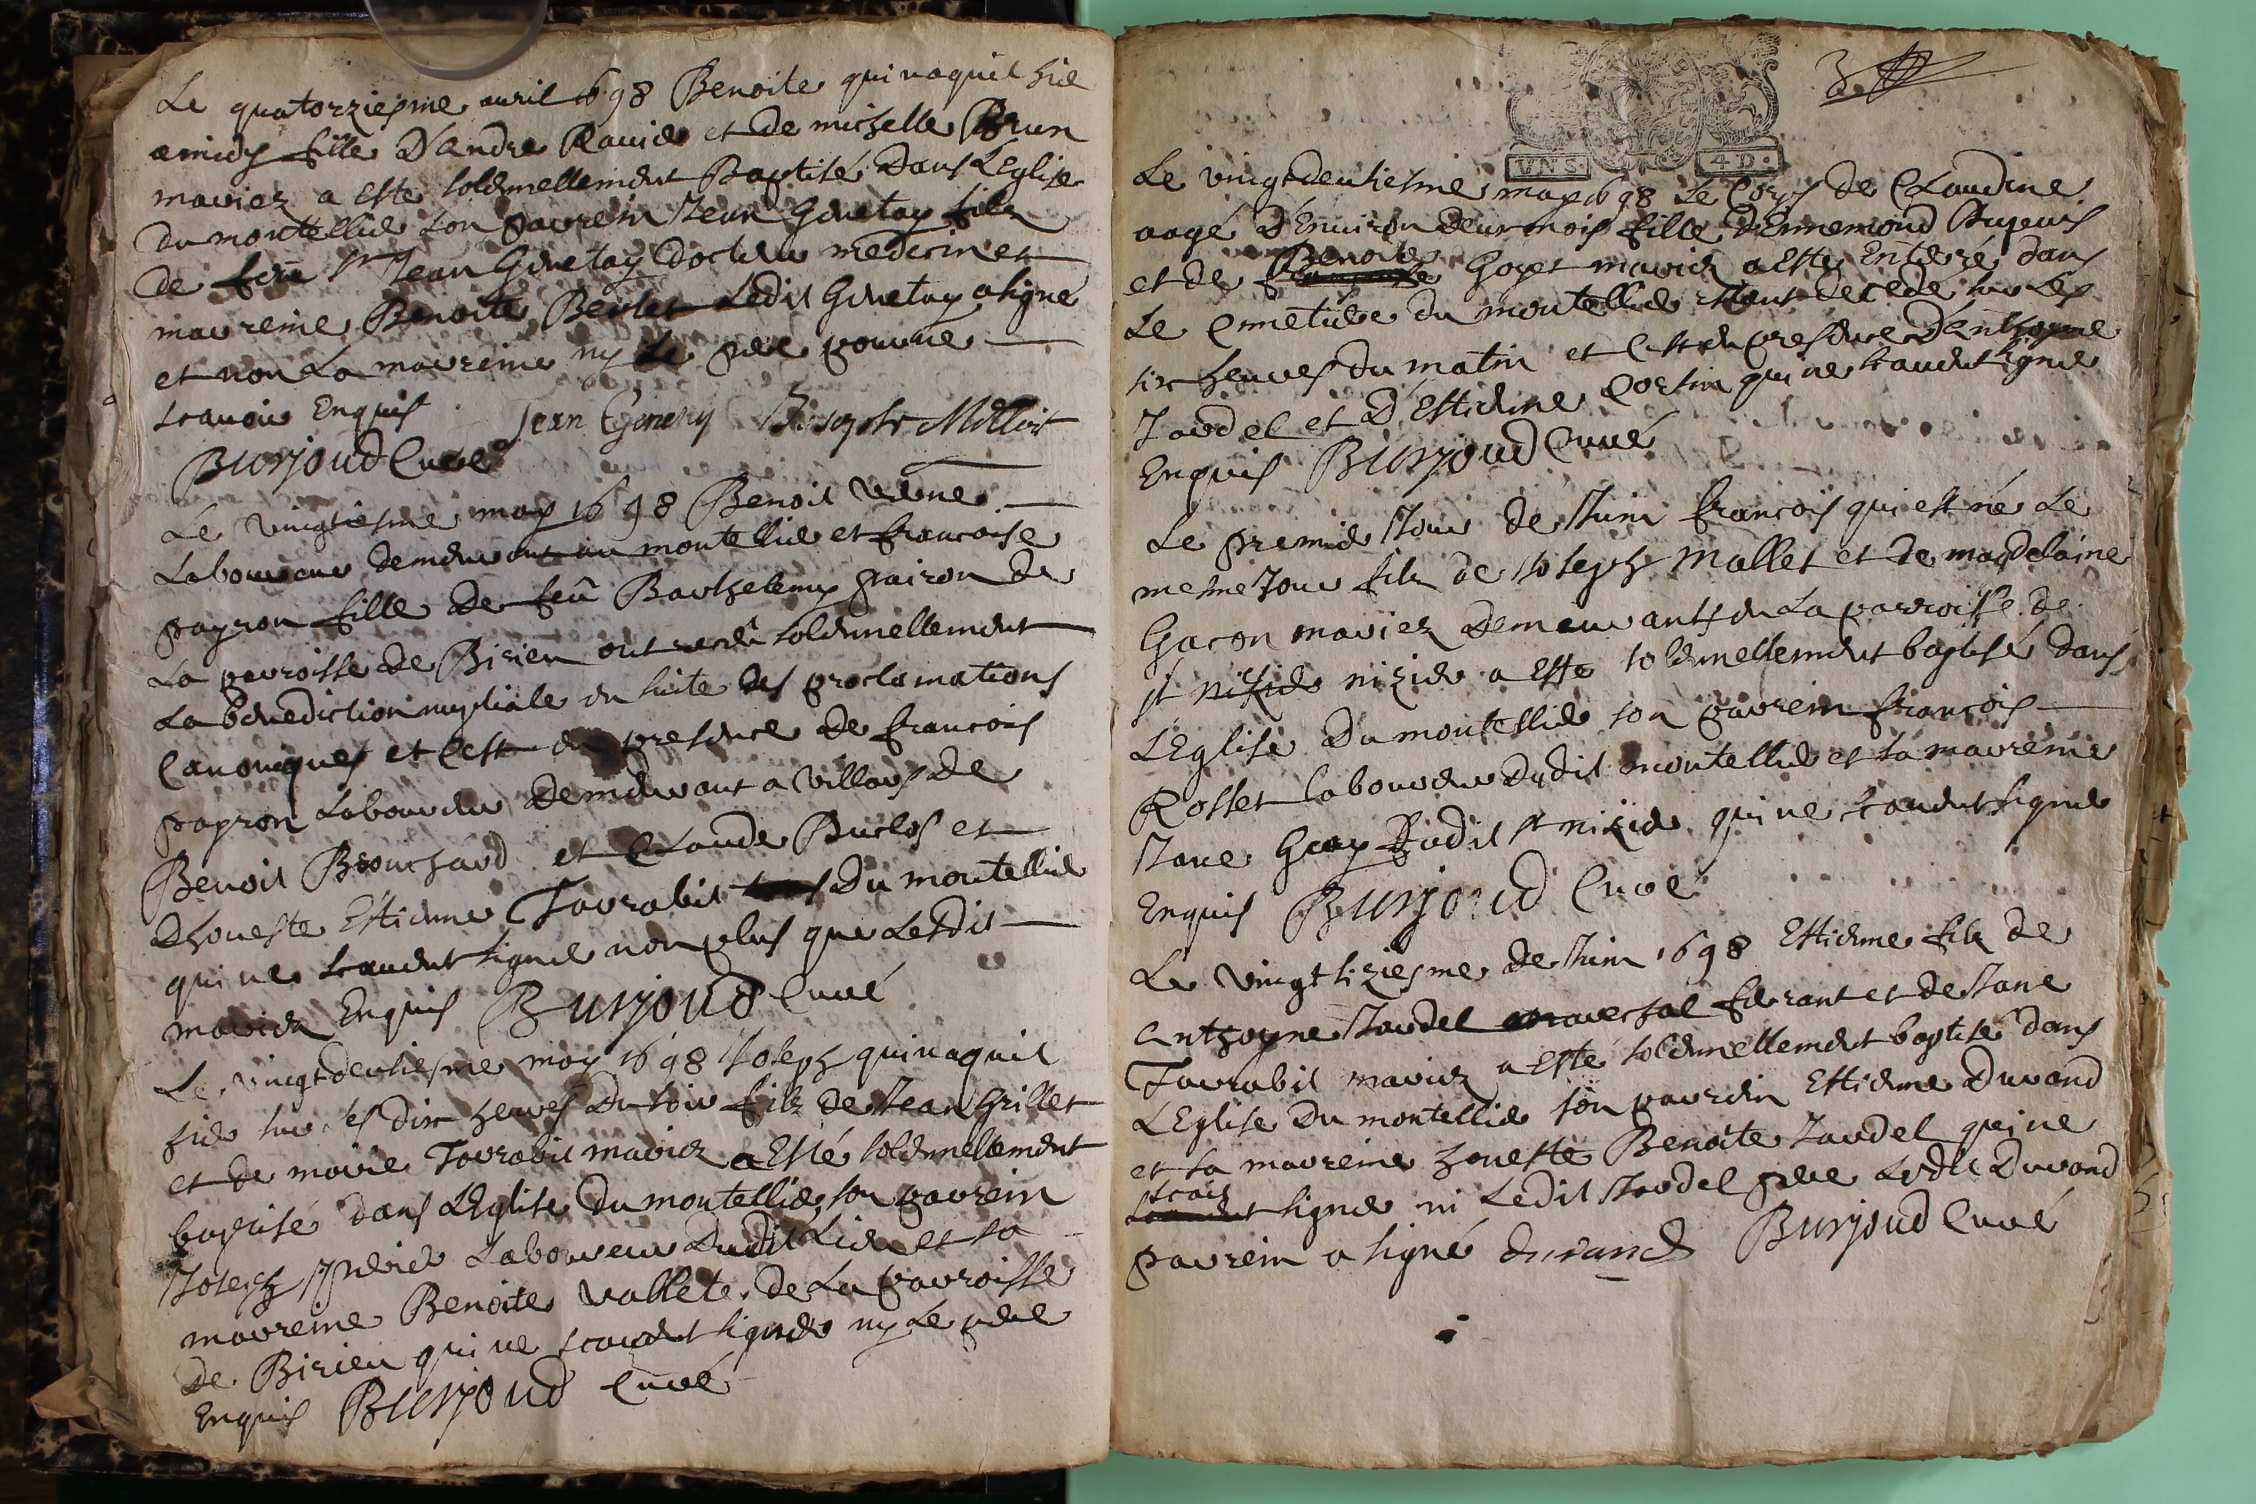 Le quatorziesme avril 1698 Benoite qui naquit hier
a midy fille D'andre Ravier et de michelle Brun
mariez a esté solennellement Baptisé Dans L'Eglise
Du montellier son parrein Jean Genetay filz
De feu Sr Jean Genetay Docteur medecin et
marreine Benoite Berlet Ledit Genetay a signé
et non La marreine ny Le pere pour ne
scavoir Enquis Jean Genetay Joseph Milliet
Burjoud Curé
Le vingtiesme may 1698 Benoit
Laboureur demeurant au montellier et francoise
payron fille De feû Barthelemy pairon De
La parroisse de Birieu ont receû solennellement
La benediction nuptiale en suite des proclamations
Canoniques et C'est en presence de francois
payron Laboureur Demeurant a villars De
Benoit Brouchard et Claude Buclos et
D'honeste Estienne Tavrabit Du montellier
qui ne scavent signer non plus que Lesdits
mariez Enquis Burjoud Curé
Le vingtdeusiesme may 1698 Joseph qui naquit
hier sur les dix heures Du soir filz de Jean Grillet
et de marie Tavrabit mariez a Esté solennellement
baptisé dans L'Eglise Du montellier son parrein
Joseph Laboureur Dudit Lieu et sa
marreine Benoite vallete de La parroisse
de Birieu qui ne scavent signer ny Le pere
Enquis Burjoud Curé
3
VN S. 4 D.
Le vingtdeusiesme may 1698 Le Corps de Claudine
aagé D'Environ deux mois fille D'Ennemond Dupuis
Benoite
et de Goyet mariez a Esté Enterré dans
Le Cimetiere du montellier estant decedé sur Les
six heures du matin et C'est en presence D'anthoyne
Jardel et D'Estienne Corsin qui ne scavent signer
Enquis Burjoud Curé
Le premier Jour de Juin francois qui est né Le
mesme Jour filz de Joseph Mallet et de magdelaine
Gacon mariez Demeurants en La parroisse de
st nizier a Esté solennellement baptisé dans
L'Eglise Du montellier son parrein francois
Rosset laboureur Dudit montellier et sa marreine
Jane Gay Dudit st nizier qui ne scavent signer
Enquis Burjoud Curé
Le vingt siziesme de Juin 1698 Estienne filz de
anthoyne Jardel ferrant et de Jane
Tavrabit mariez a Esté solennellement baptisé dans
L'Eglise Du montellier son parrein Estienne Durand
et sa marreine honeste Benoite Jardel qui ne
scait
signer ni Ledit Jardel pere Ledit Durand
parrein a signé durand Burjoud Curé